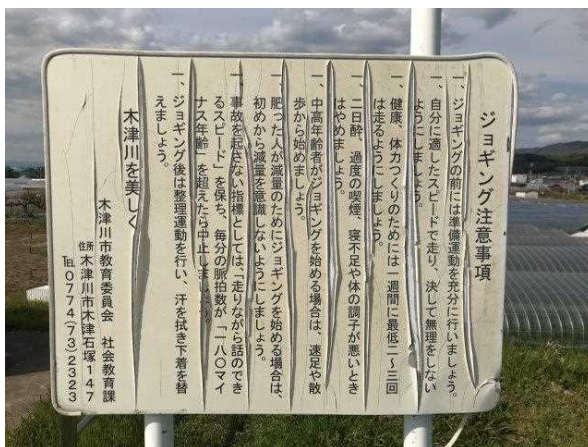 ジョギング注意事項
一、ジョギングの前には準備運動を充分に行いましょう。
一、自分に適したスピードで走り、決して無理をしない
ようにしましょう。
一、健康、体力つくりのためには一週間に最低二～三回
は走るようにしましょう。
一、二日酔、過度の喫煙、寝不足や体の調子が悪いとき
はやめましょう。
一、中高年齢者がジョギングを始める場合は、速足や散
歩から始めましょう。
一、肥った人が減量のためにジョギングを始める場合は、
初めから減量を意識しないようにしましょう。
一、事故を起さない指標としては「走りながら話のでき
るスピード」を保ち、毎分の脈拍数が「一八〇マイ
ナス年齢」を超えたら中止しましょう。
一、ジョギング後は整理運動を行い、汗を拭き下着を替
えましょう。
木津川を美しく
木津川市教育委員会 社会教育課
住所 木津川市木津石塚147
TEL 0774(73)2323